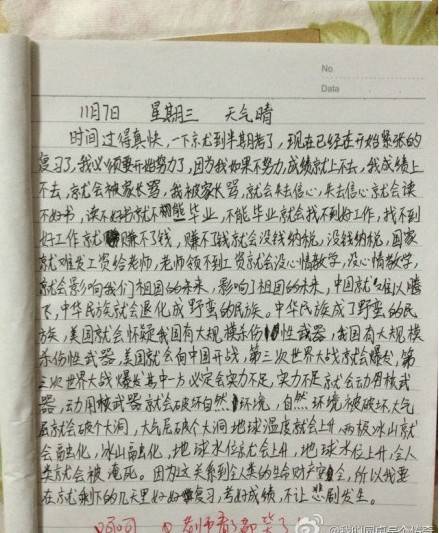 No
Data
11月7日 星期三 天气晴
时间过得真快,一下就到半期考了,现在已经在开始紧张的
复习了,我必须要开始努力了,因为我如果不努力,成绩就上不去,我成绩上
不去,就会被家长骂,我被家长骂,就会失去信心,失去信心就会读
不好书,读不好书就不能毕业,不能毕业就会找不到好工作,找不到
好工作就赚不了钱,赚不了钱就会没钱纳税,没钱纳税,国家
就难发工资给老师,老师领不到工资就会没心情教学,没心情教学,
就会影响我们祖国的未来,影响了祖国的未来,中国就难以腾
飞,中华民族就会退化成野蛮的民族。中华民族成了野蛮的民
族,美国就会怀疑我国有大规模杀伤性武器,我国有大规模
杀伤性武器,美国就会向中国开战,第三次世界大战就会爆发,第
三次世界大战爆发其中一方必定会实力不足,实力不足就会动用核武
器,动用核武器就会破坏自然环境,自然环境被破坏,大气
层就会破个大洞,大气层破个大洞地球温度就会上升,两极冰山就
会融化,冰山融化,地球水位就会上升,地球水位上升,全人
类就会被淹死。因为这关系到全人类的生命财产安全,所以我要
在就剩下的几天里好好复习,考好成绩,不让悲剧发生。
呵呵 老师看了都笑了